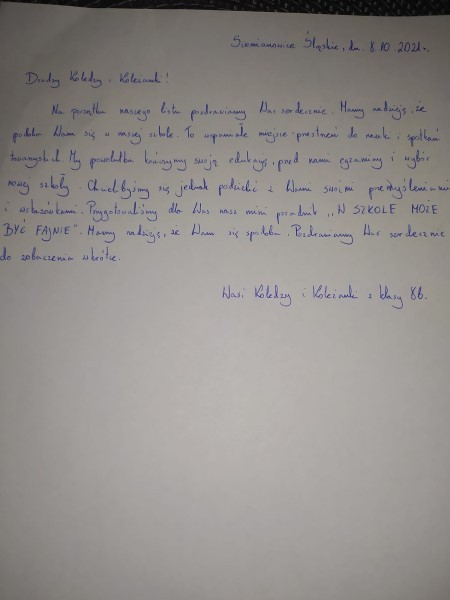 Siemianowice Śląskie, dn. 8.10.2021r.
Drodzy Koledzy i Koleżanki!
Na początku naszego listu pozdrawiamy Was serdecznie. Mamy nadzieję, że
podoba Wam się w naszej szkole. To wspaniałe miejsce - przestrzeń do nauki i spotkań
towarzyskich My powolutku kończymy swoją edukację, przed nami egzaminy i wybór
nowej szkoły. Chcielibyśmy się jednak podzielić z Wami swoimi przemyśleniami
i wskazówkami. Przygotowaliśmy dla Was nasz mini poradnik „W SZKOLE MOŻE
BYĆ FAJNIE". Mamy nadzieję, że Wam się spodoba. Pozdrawiamy Was serdecznie
do zobaczenia wkrótce.
Wasi Koledzy i Koleżanki z klasy 8b.